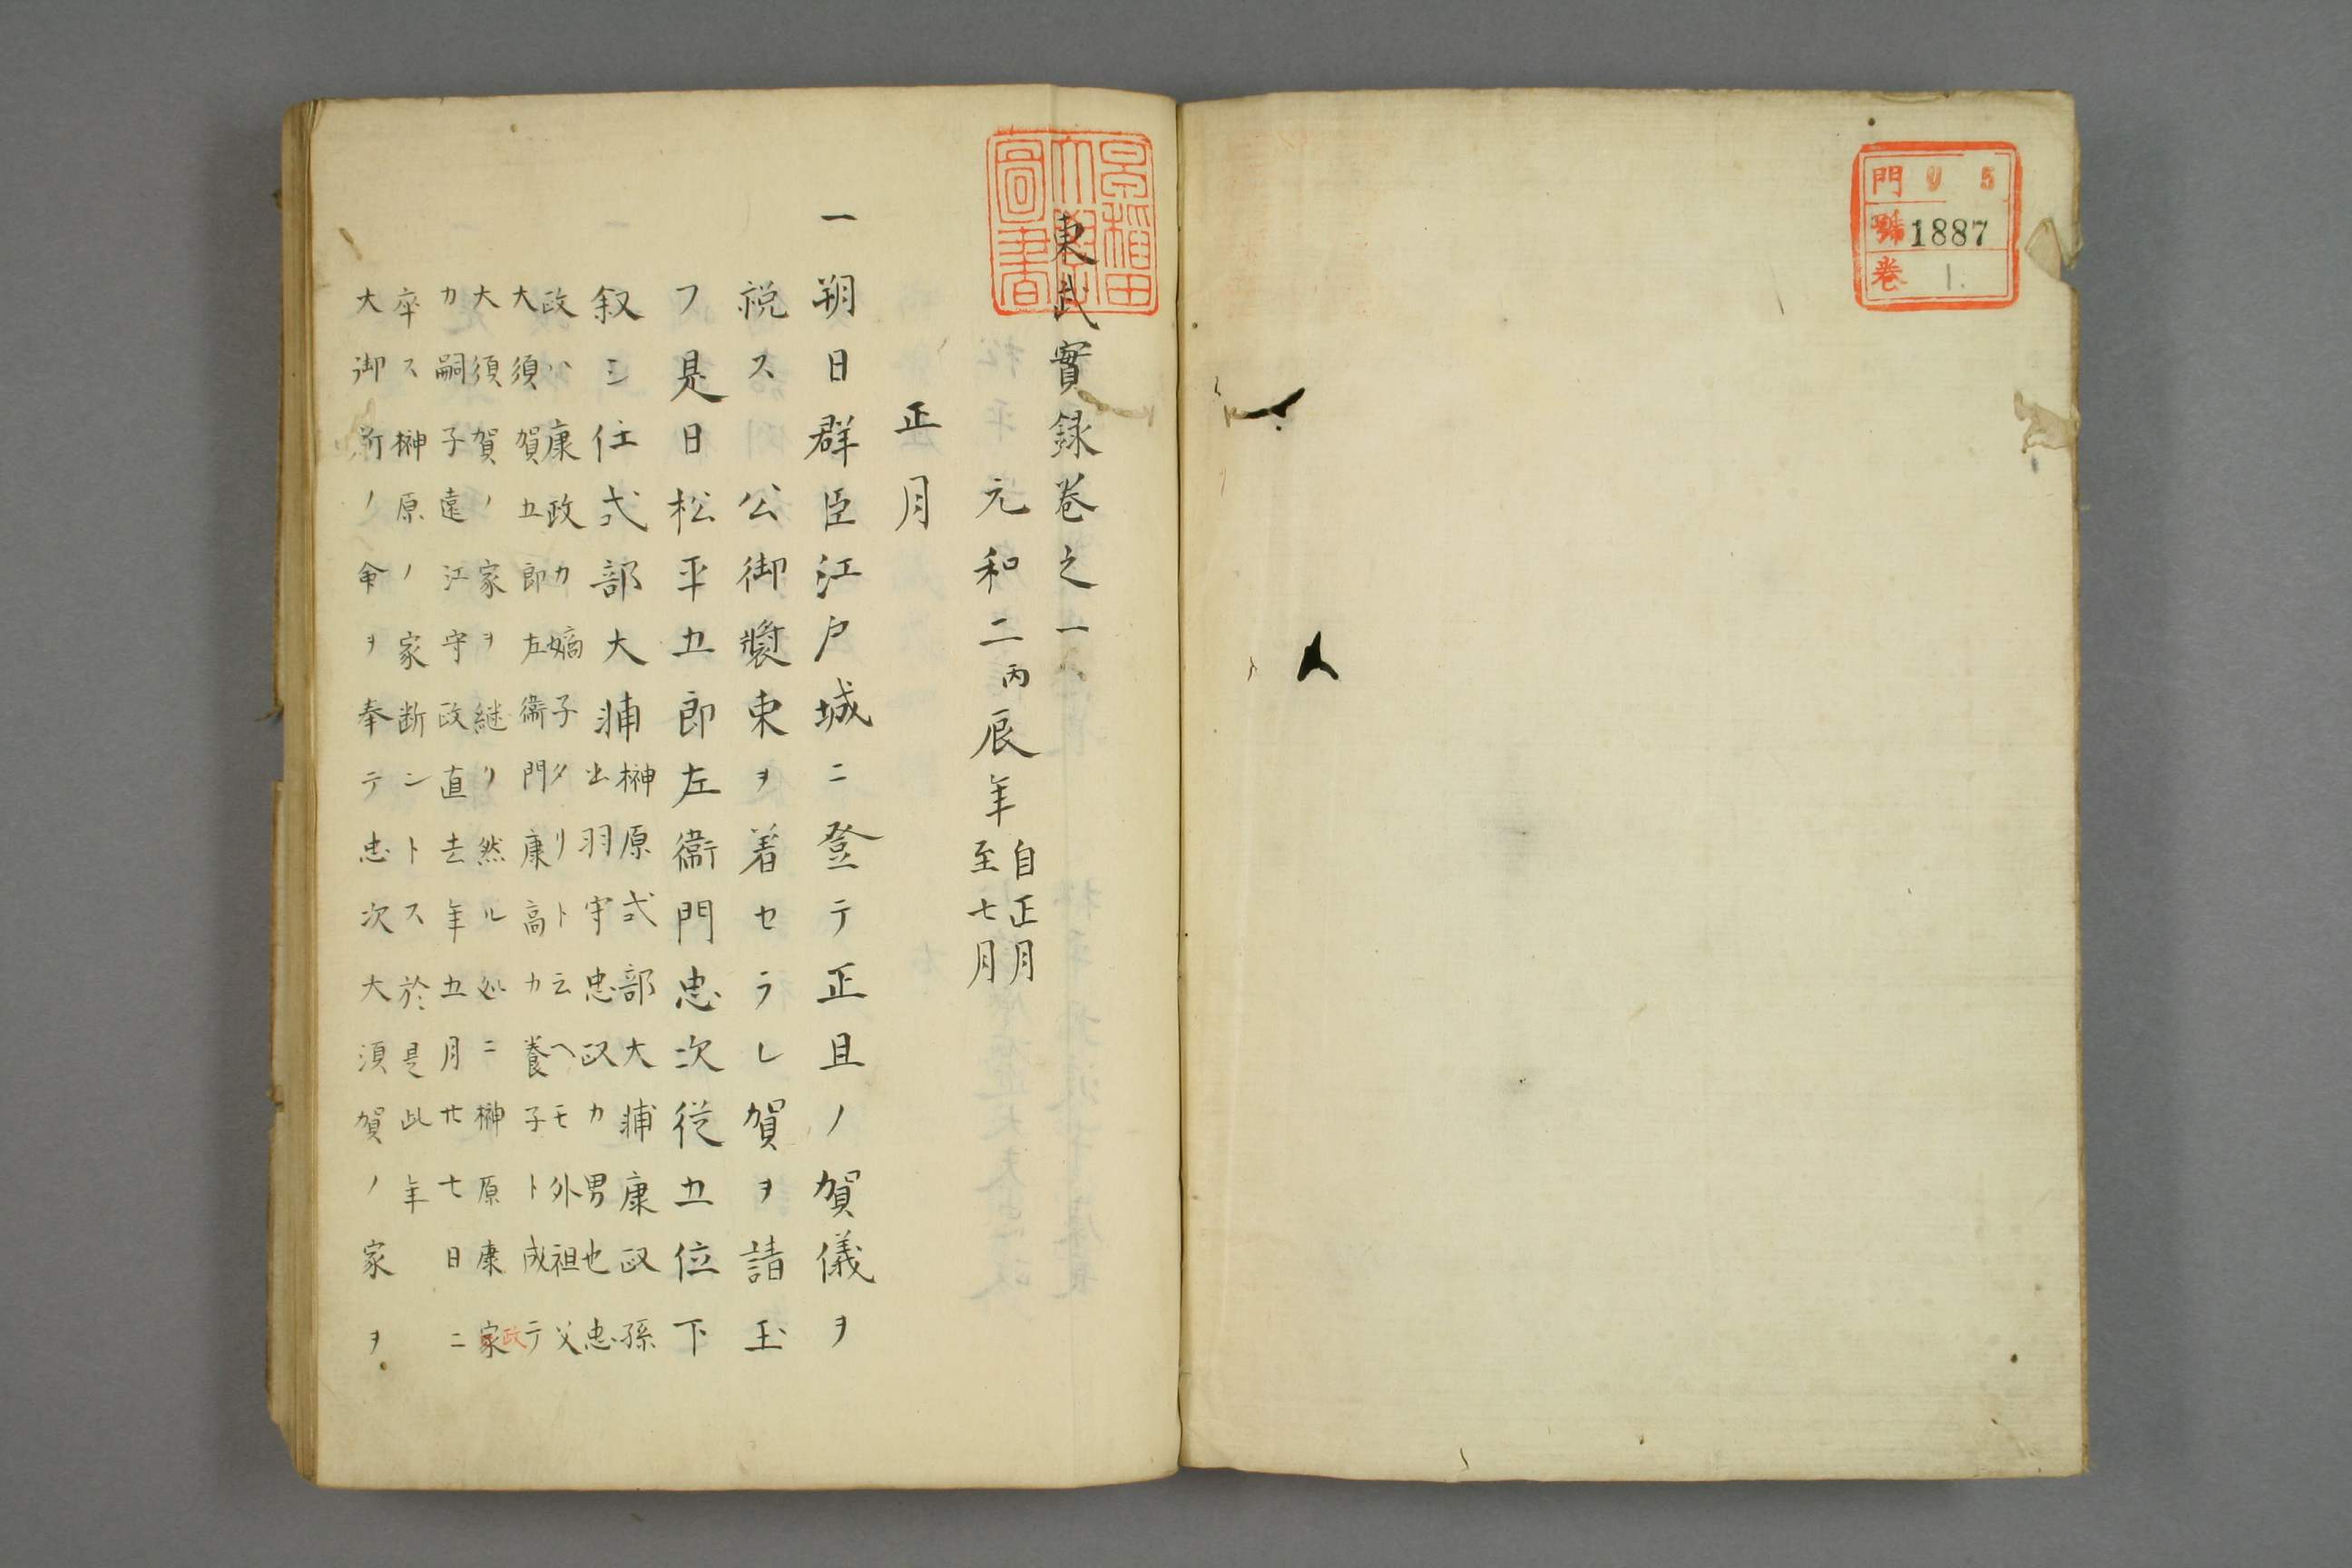 門 リ 5
號 1887
卷 1.
早稲田
大學
圖書
東武實録巻之一
元和二丙辰年 自正月
至七月
正月
一朔日群臣江戸城ニ登テ正旦ノ賀儀ヲ
祝ス 公御装束ヲ着セラレ賀ヲ請玉
フ是日松平五郎左衞門忠次従五位下
叙シ任式部大輔 榊原式部大輔康政孫
出羽守忠政カ男也忠
政ハ康政カ嫡子タリト云ヘモ外祖父
大須賀五郎左衞門康高カ養子ト成テ
大須賀ノ家ヲ継リ然ル処ニ榊原康家政
カ嗣子遠江守政直去年五月廿七日ニ
卒ス榊原ノ家断シトス於是此年
大御所ノ命ヲ奉テ忠次大須賀ノ家ヲ